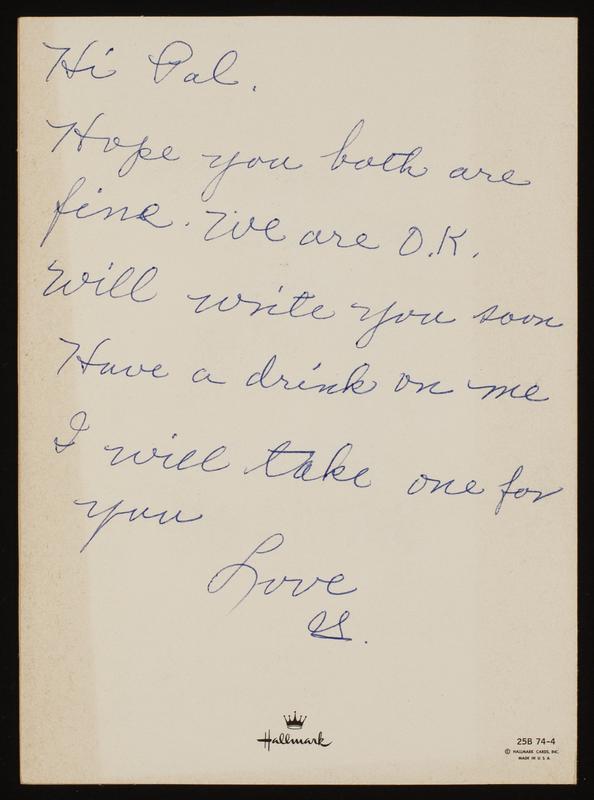 Hi Pal.
Hope you both are
fine. We are O.K.
will write you soon
Have a drink on me
I will take one for
you
Love
Hallmark
25B 74-4
© HALLMARK CARDS, INC.
MADE IN U S A